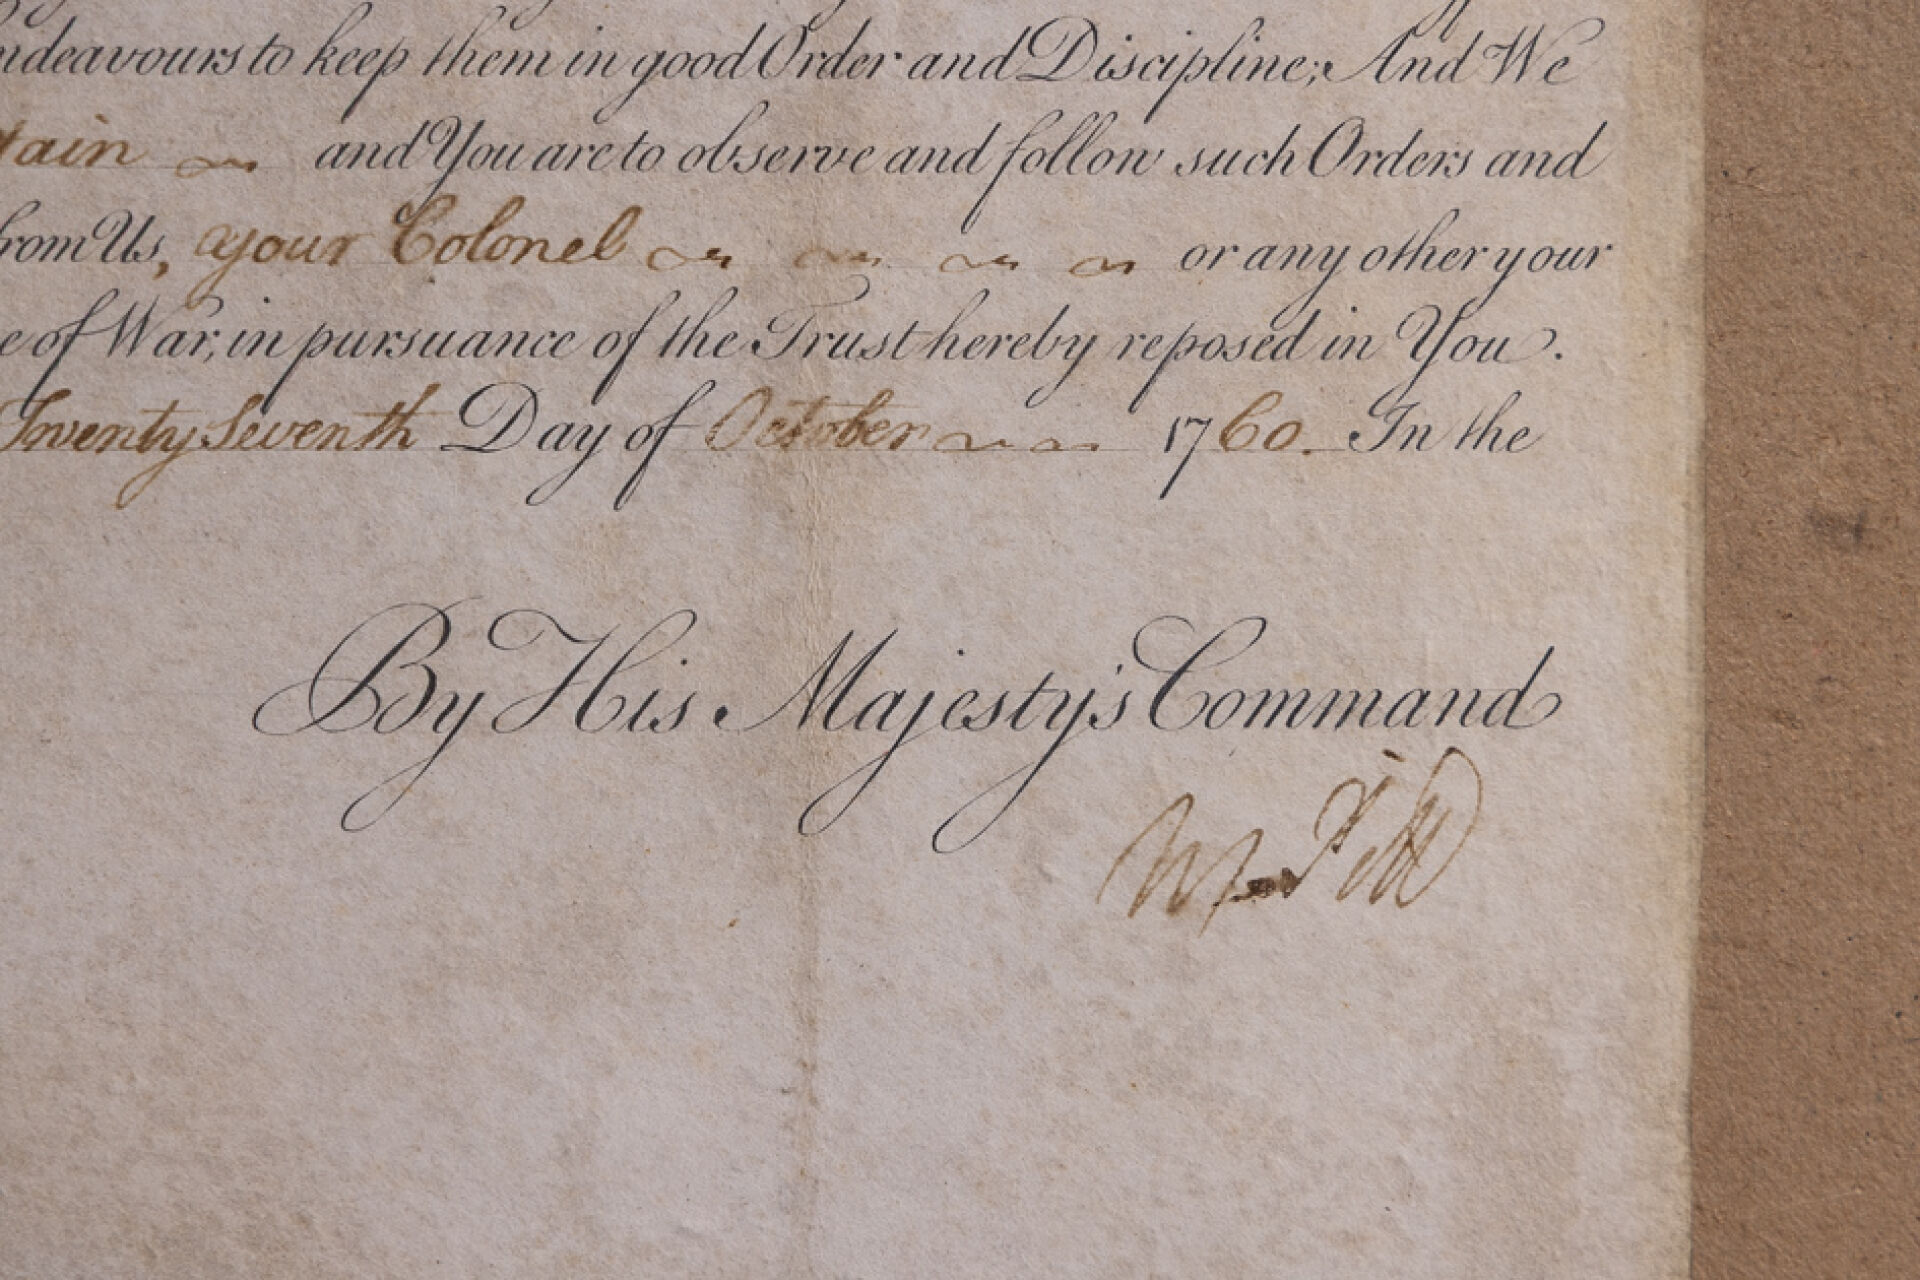 ndeavours to keep them in good Order and Discipline; And We
tain and You are to observe and follow such Orders and
from Us, your Colonel or any other your
e of War, in pursuance of the Trust hereby reposed in You.
Twenty Seventh Day of October 1760. In the
By His Majesty's Command
W Pitt